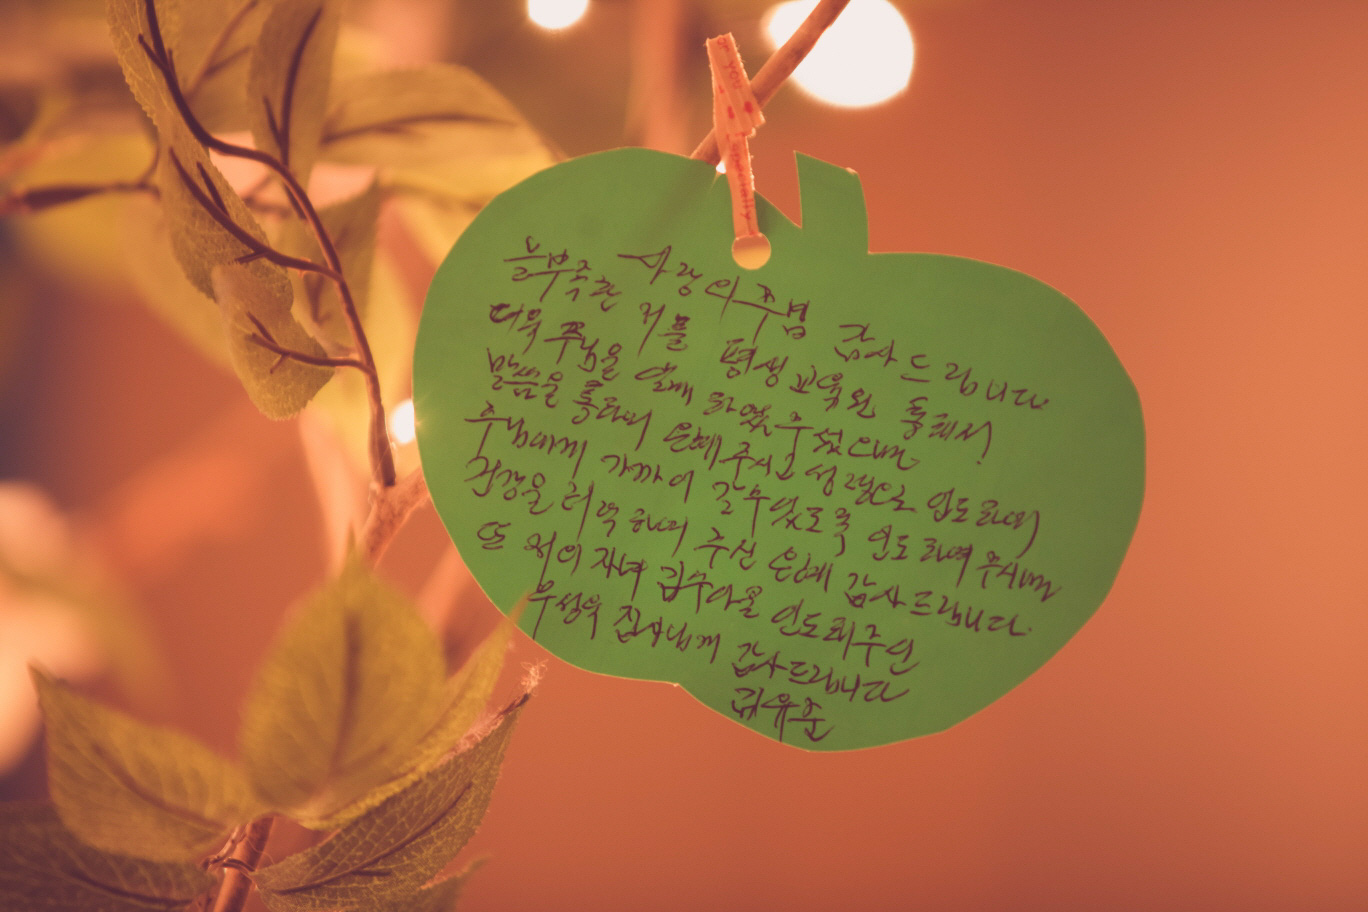 사랑의 주님 감사드립니다
늘 부족한 저를 평생교육원 통해서
더욱 주님을 알게 하였주셨으며
말씀을 통하여 은혜주시고 성령으로 인도하여
주님에게 가까이 갈 수 있도록 인도하여 주시며
건강을 허락하여 주신 은혜 감사드립니다
또 저의 자녀 김수아를 인도해주신
우성욱 집사님께 감사드립니다
김유준